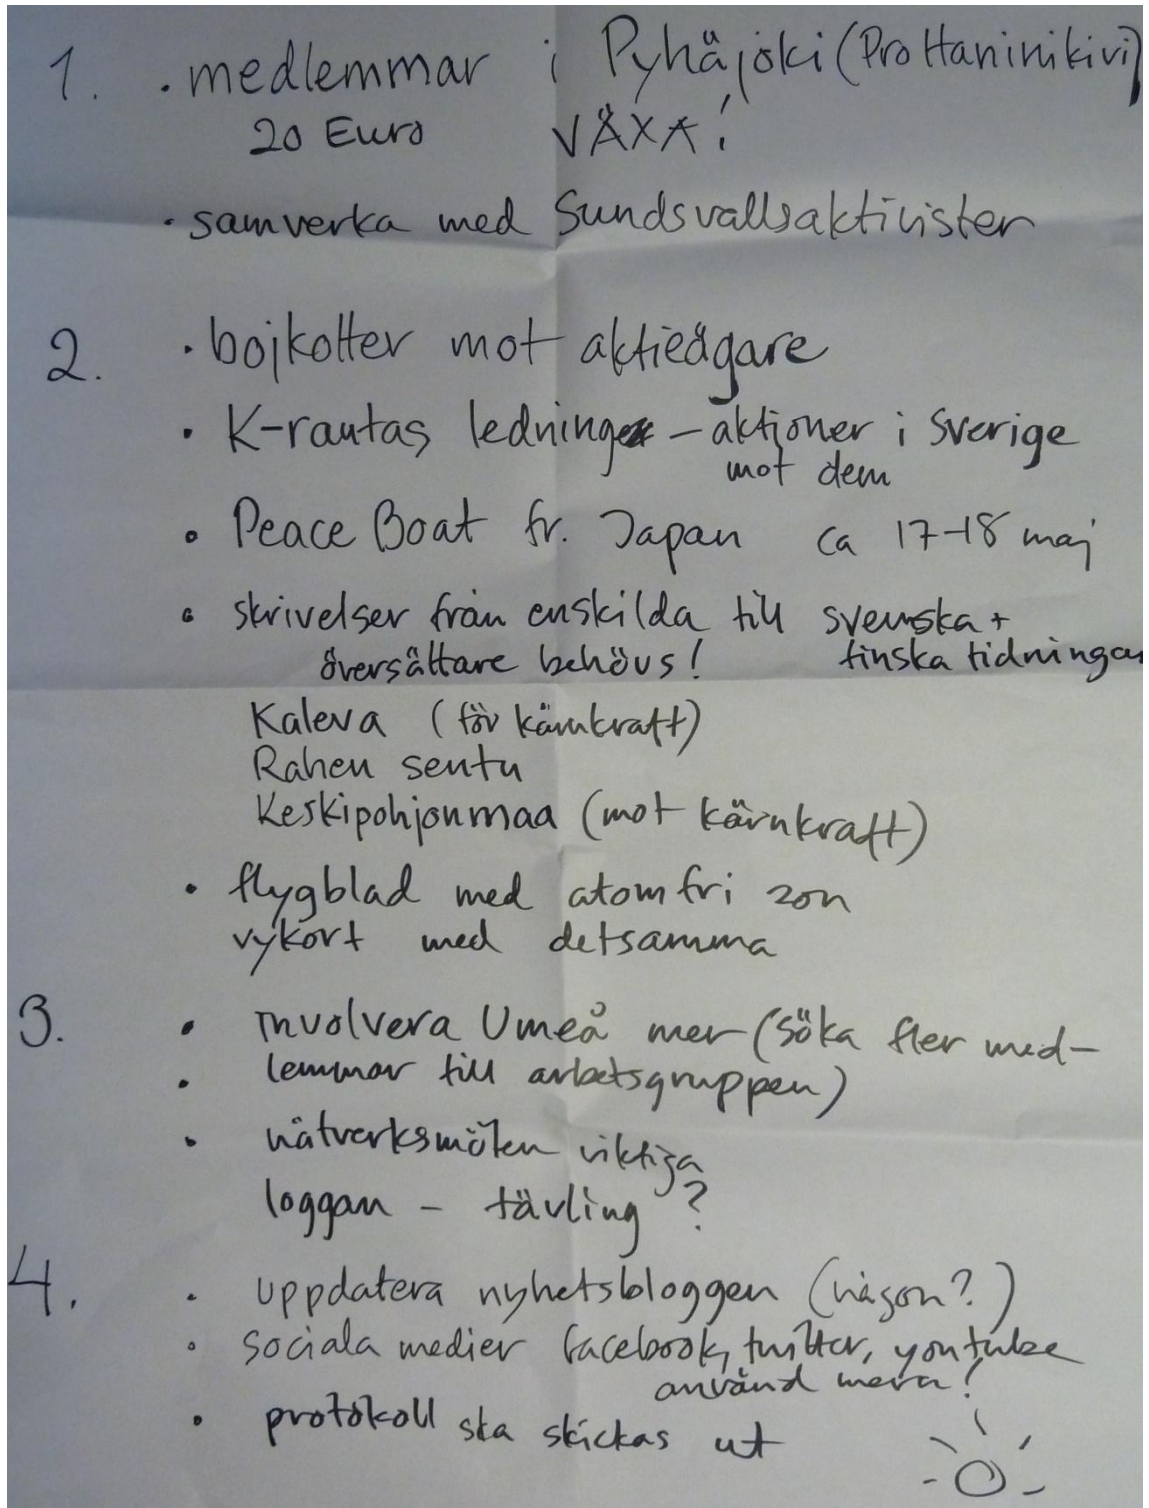 1. · medlemmar i Pyhäjoki (Pro Haninikivi)
20 Euro VÄXA!
· samverka med Sundsvallsaktivister
2. · bojkotter mot aktieägare
· K-rautas ledning – aktioner i Sverige
mot dem
· Peace Boat fr. Japan ca 17-18 maj
· skrivelser från enskilda till svenska +
översättare behövs! finska tidningar
Kaleva (för kärnkraft)
Rahen sentu
Keskipohjonmaa (mot kärnkraft)
· flygblad med atomfri zon
vykort med detsamma
3. · involvera Umeå mer (söka fler med-
· lemmar till arbetsgruppen)
· nätverksmöten viktiga
loggan – tävling ?
4. · uppdatera nyhetsbloggen (någon?)
· sociala medier facebook, twitter, youtube
använd mera!
· protokoll ska skickas ut